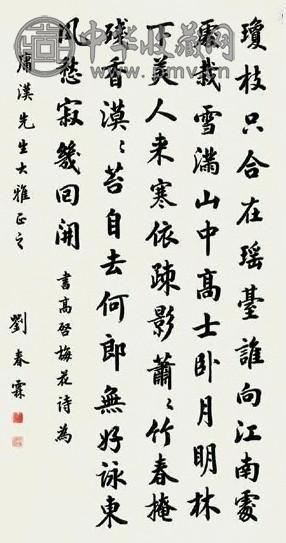 瓊枝只合在瑶臺誰向江南處
處栽雪滿山中高士卧月明林
下美人来寒依疎影蕭〻竹春掩
殘香漠〻苔自去何郎無好詠東
風愁寂幾回開 書高啓梅花诗為
庸漢先生大雅正之
劉春霖
中华收藏网